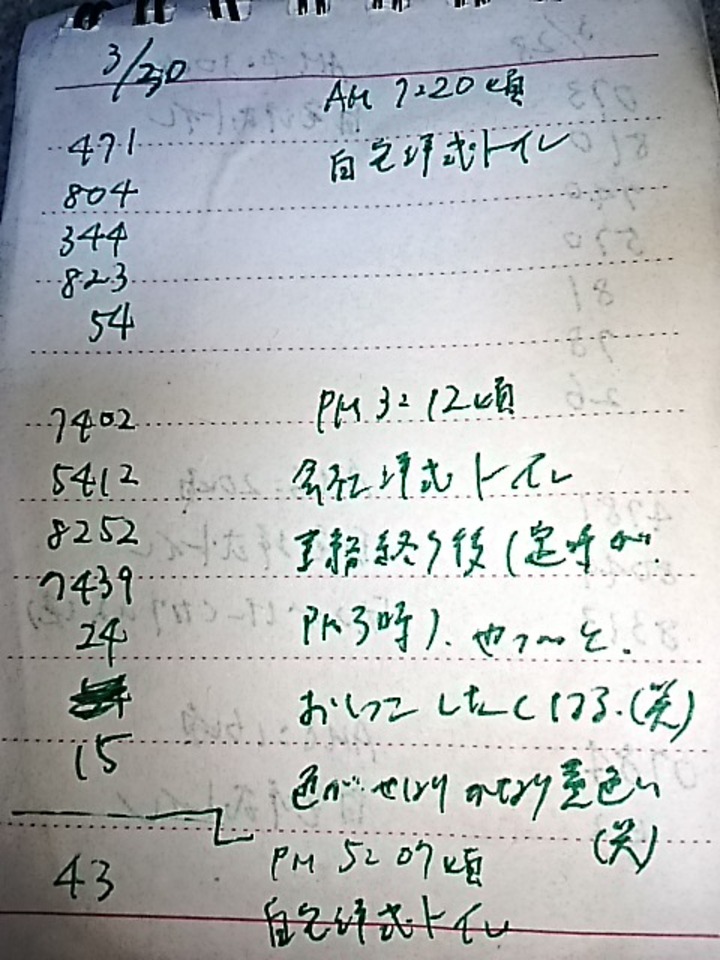 3/30
AM 7:20頃
471
自宅洋式トイレ
804
344
823
54
7402
PM 3:12頃
5412
会社洋式トイレ
8252
業務終了後(定時が
7439
PM3時)、やっと、
24
おしっこしたくなる.(笑)
15
色がやはりかなり黄色い
(笑)
PM 5:07頃
43
自宅洋式トイレ